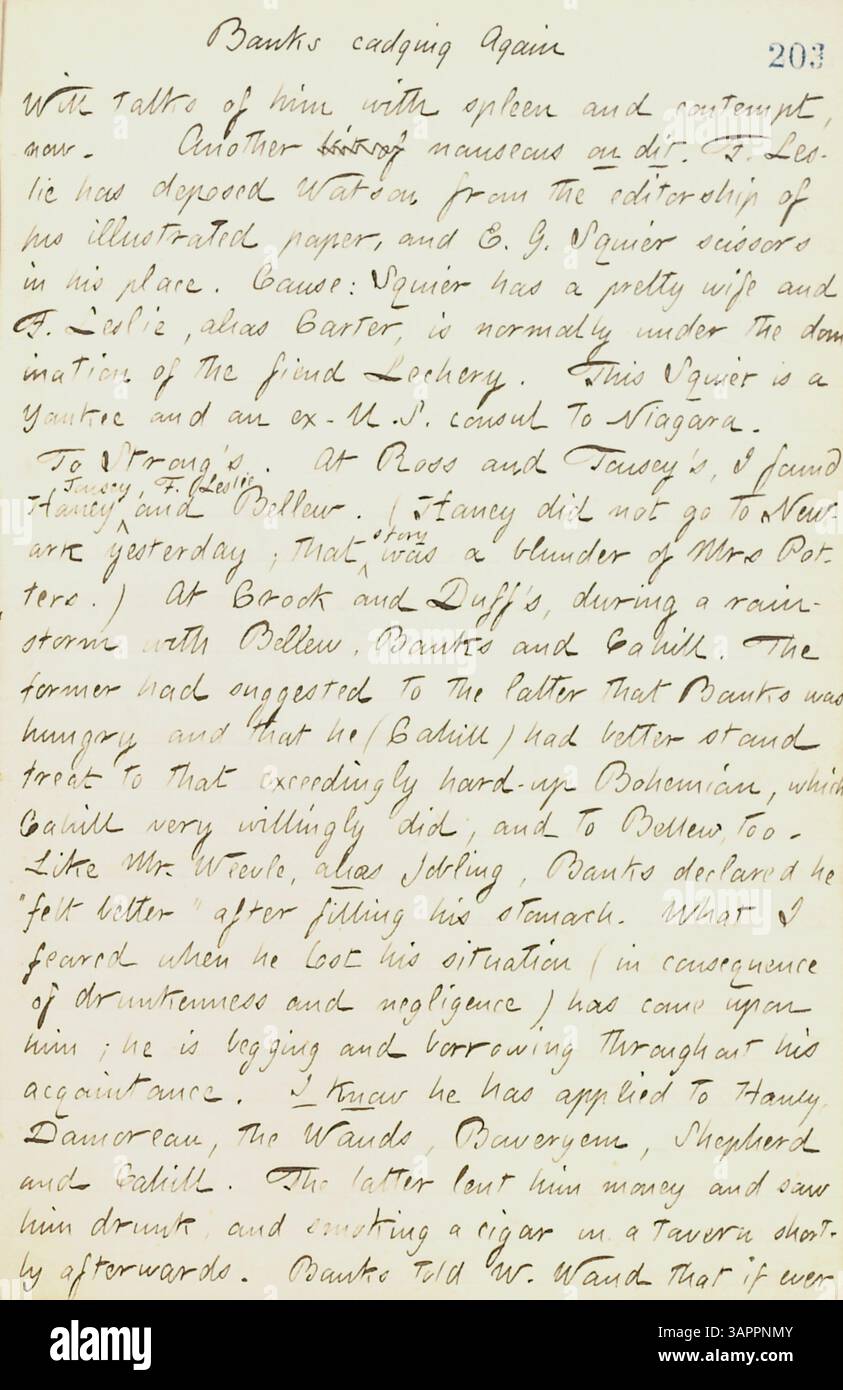 Banks cadging Again
203
Will talks of him with spleen and contempt,
now. Another bit of nauseous on dit. F. Les-
lie has deposed Watson from the editorship of
his illustrated paper, and E. G. Squier scissors
in his place. Cause: Squier has a pretty wife and
F. Leslie, alias Carter, is normally under the dom
ination of the fiend Lechery. This Squier is a
Yankee and an ex-U.S. consul to Niagara.
To Strong's. At Ross and Tousey's, I found
Tousey, F. Leslie
Haney and Bellew. (Haney did not go to New-
story
ark yesterday; that was a blunder of Mrs Pot-
ters.) At Crook and Duff's, during a rain-
storm with Bellew, Banks and Cahill. The
former had suggested to the latter that Banks was
hungry and that he (Cahill) had better stand
treat to that exceedingly hard-up Bohemian, which
Cahill very willingly did, and to Bellew, too.
Like Mr. Weevle, alias Jobling, Banks declared he
"felt better" after filling his stomach. What I
feared when he lost his situation (in consequence
of drunkenness and negligence) has come upon
him; he is begging and borrowing throughout his
acqaintance. I know he has applied to Haney,
Damoreau, the Wands, Boweryem, Shepherd
and Cahill. The latter lent him money and saw
him drunk and smoking a cigar in a tavern short-
ly afterwards. Banks told W. Waud that "if ever
alamy
alamy
Image ID: 3APPNMY
www.alamy.com